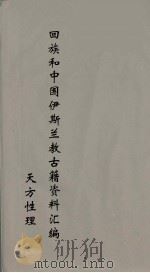 回族和中国伊斯兰教古籍资料汇编
天方性理